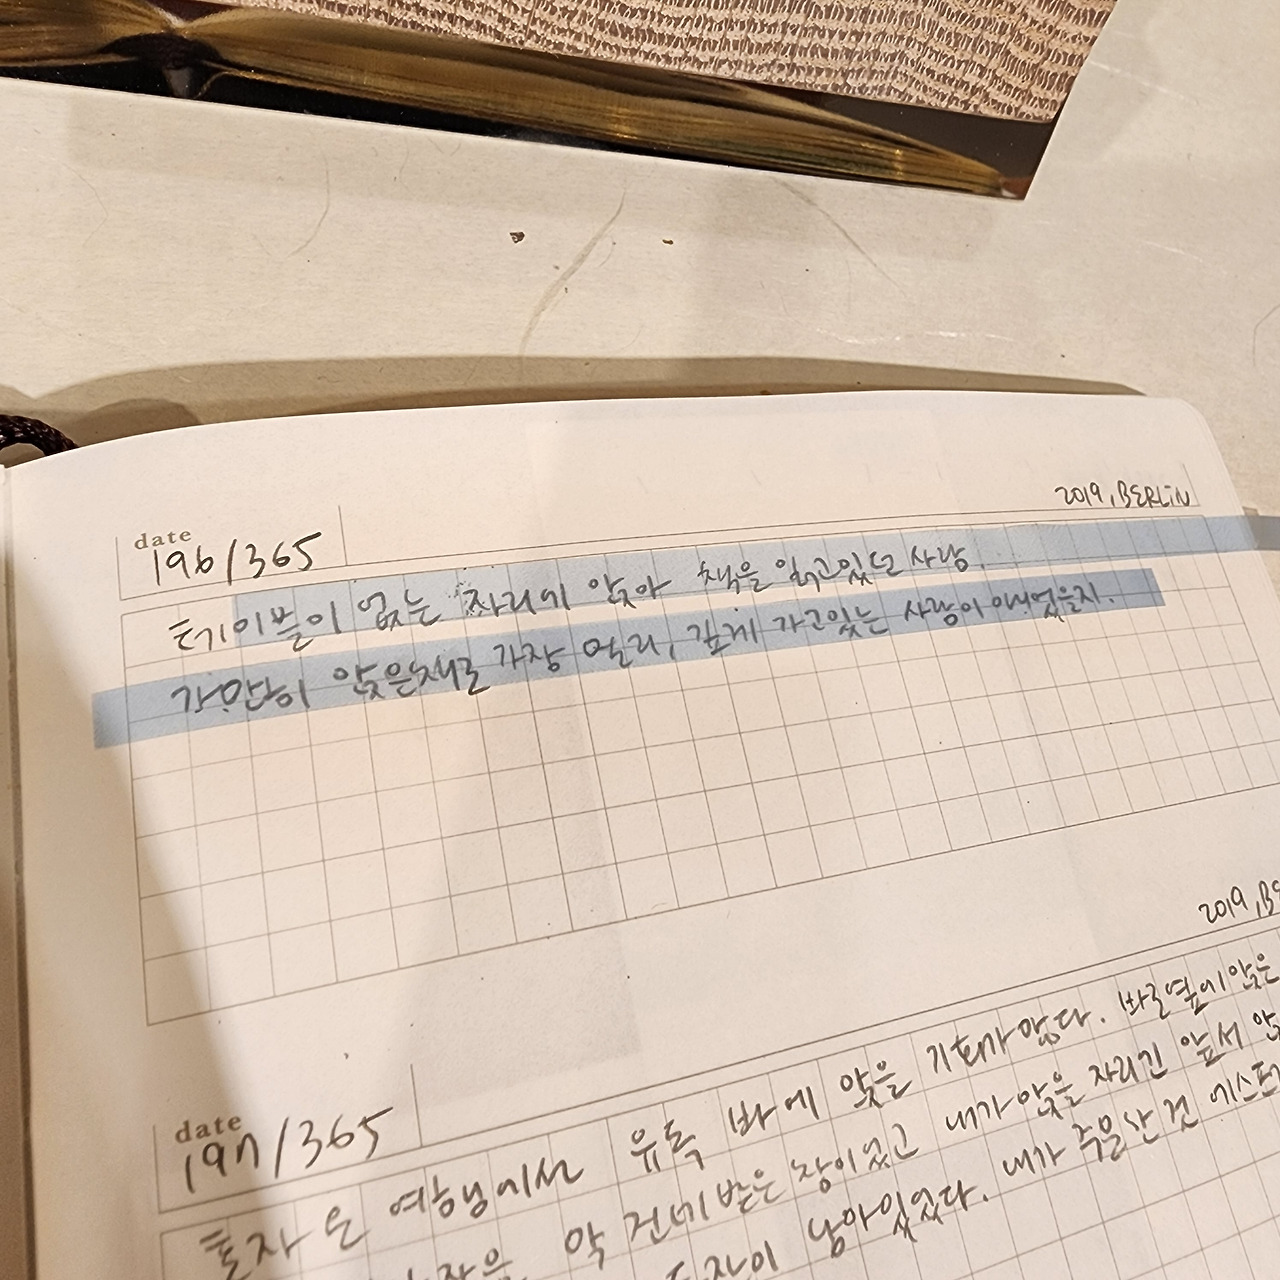 2019, BERLIN
date
196/365
테이블이 없는 자리에 앉아 책을 읽고있던 사람.
가만히 앉은채로 가장 멀리, 깊게 가고있는 사람이 아니었을지.
2019, BE
date
197/365
혼자 온 여행에서 유독 바에 앉을 기회가 많다. 바로옆에 앉은
막 건네 받은 참이었고 내가 앉을 자리긴 앞서
남아있었다. 내가 주문한 건 에스프